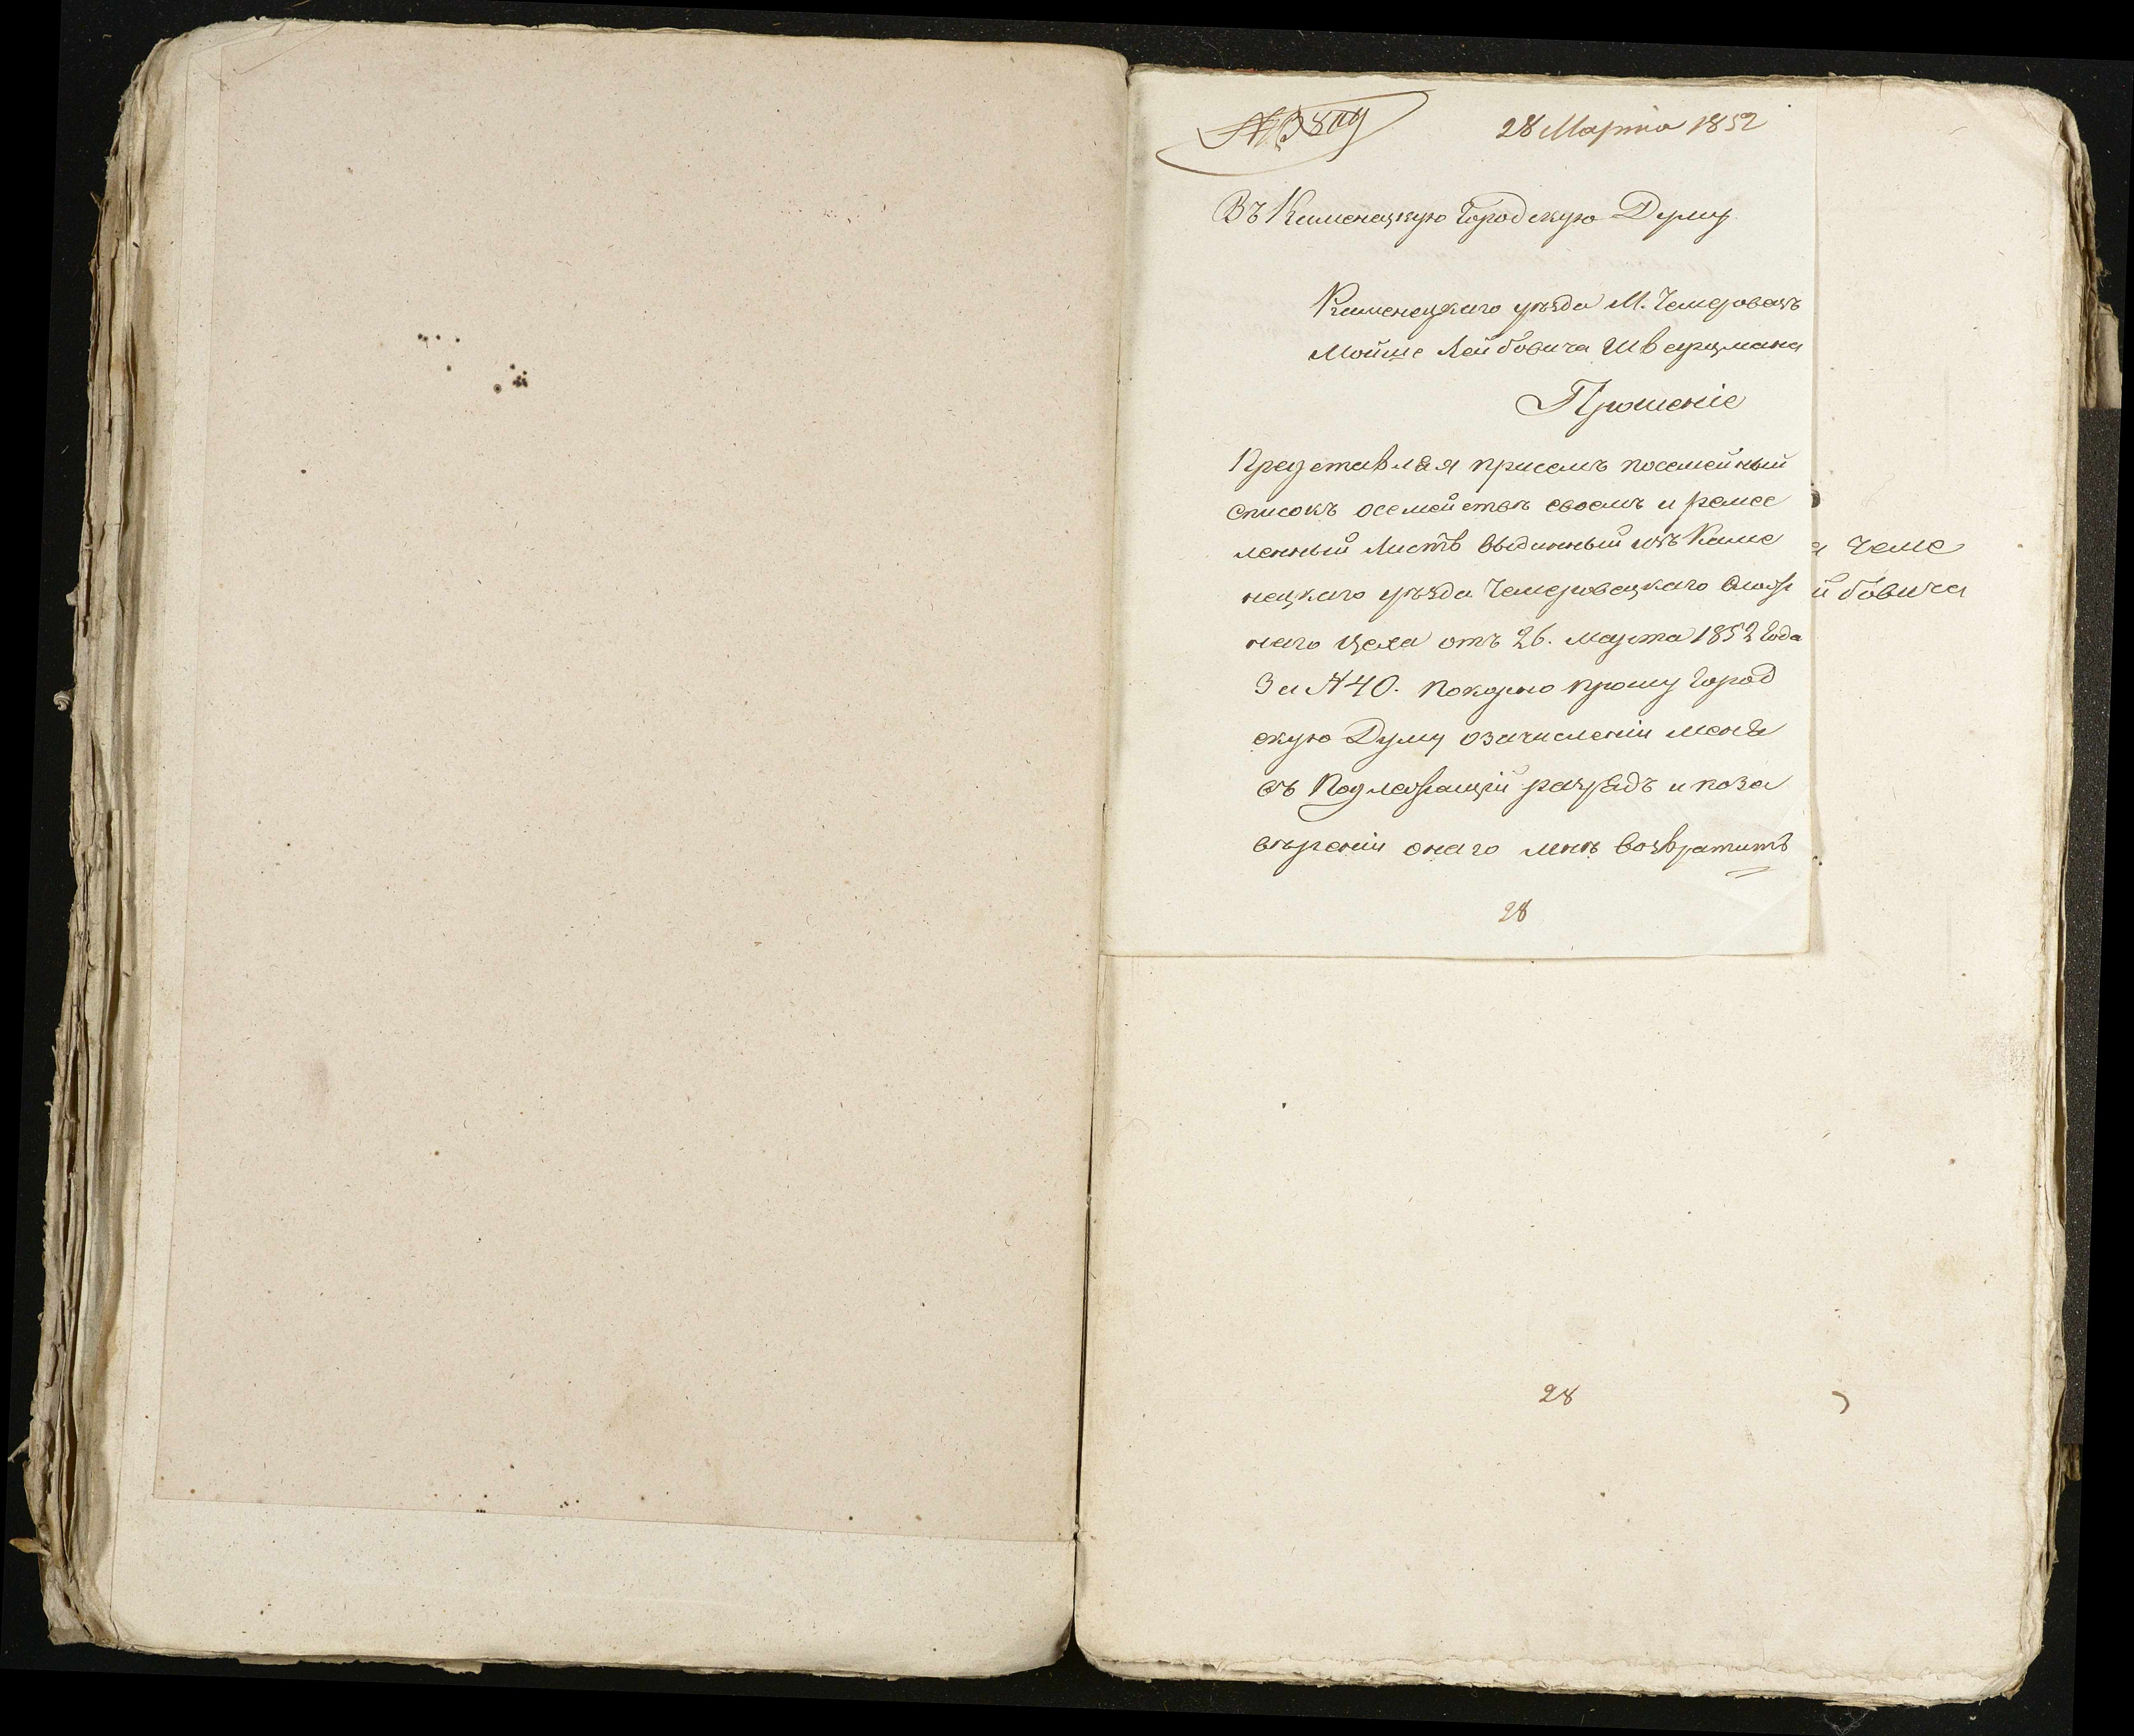 28 Марта 1852
Въ Каменецкую Городскую Думу
Каменецкаго уѣзда М. Чемеровецъ
Мойше Лейбовича Шварцмана
Прошеніе
Представляя присемъ посемейный
списокъ осемействѣ своемъ и ремес
ленный Листъ выданный изъ Каме
нецкаго уѣзда Чемеровецкаго
наго цеха отъ 26. Марта 1852 Года
За № 40. Покорно прошу Город
скую Думу озачисленіи меня
въ Подлежащій разрядъ и поза
вѣреніи онаго мнѣ возвратить
28
а Чеме
йбовича
28